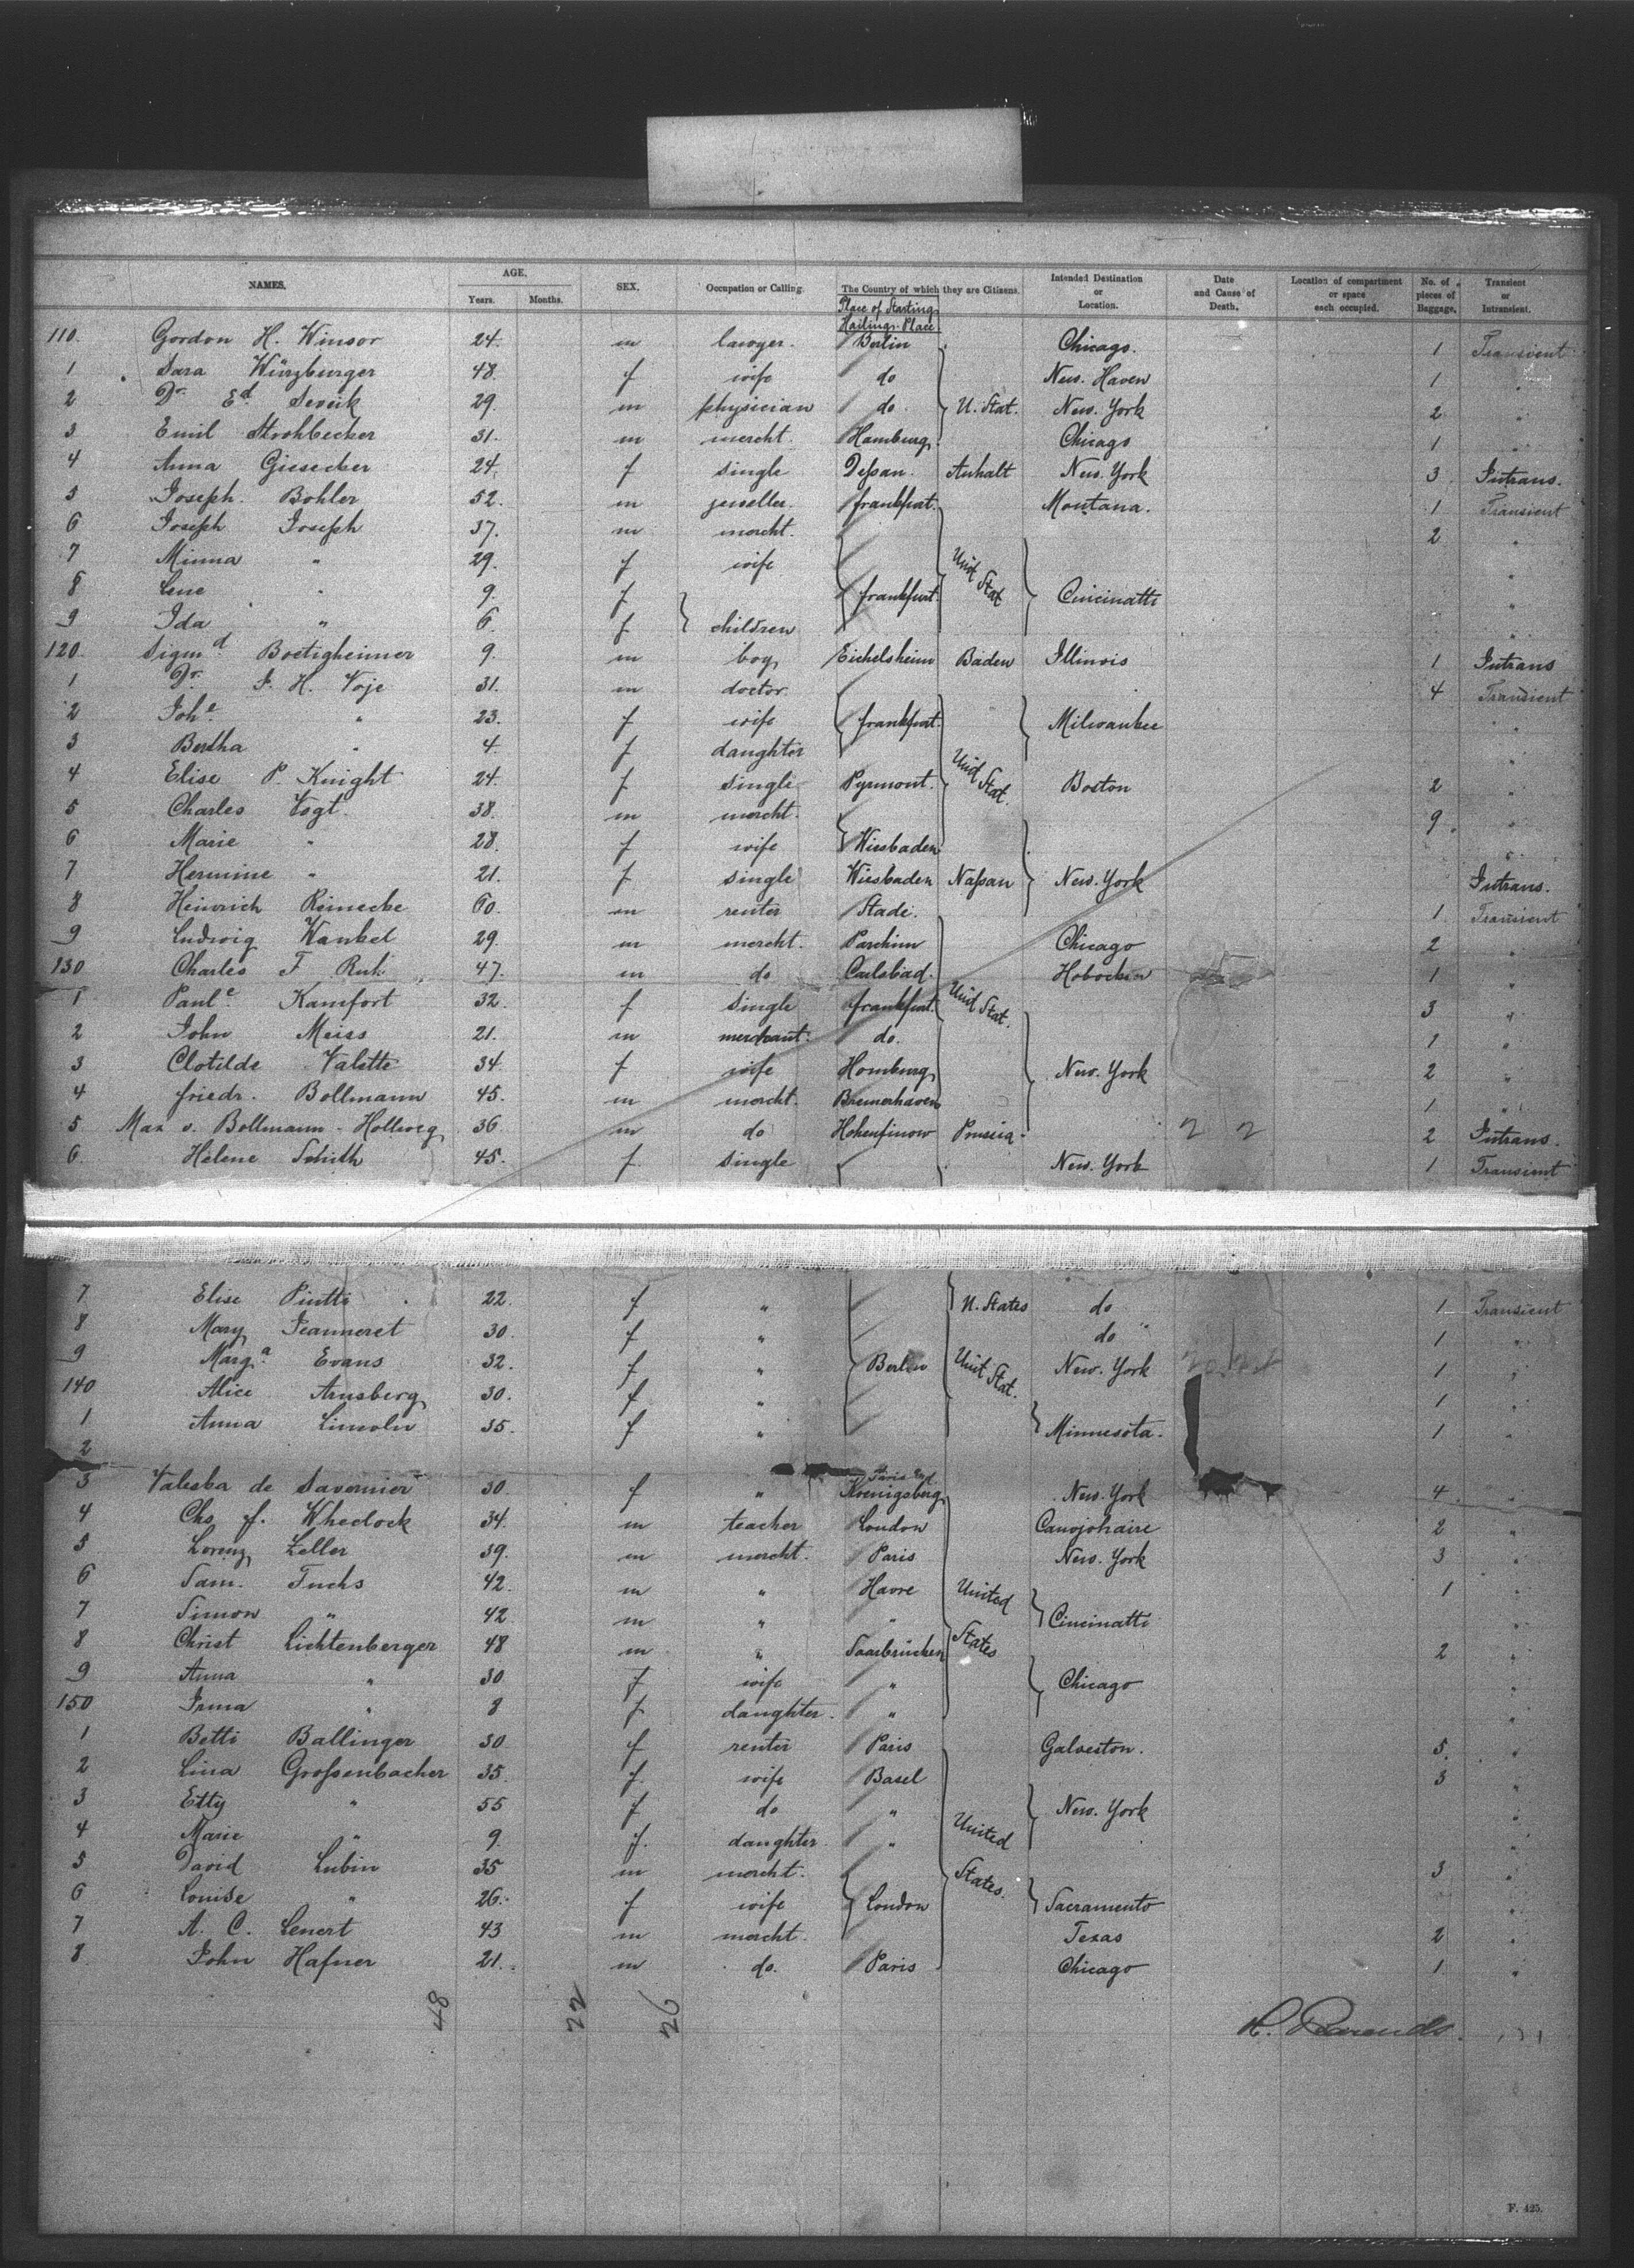 NAMES. AGE. SEX. Occupation or Calling. The Country of which they are Citizens. Intended Destination or Location. Date and Cause of Death. Location of compartment or space each occupied. No. of pieces of Baggage. Transient or Intransient.
Years. Months.
Place of Starting
Hailings Place
110. Gordon H. Winsor 24. m lawyer. Berlin Chicago. 1 Transient
1 Sara Würzburger 48. f wife do New. Haven 1 "
2 Dr. Ed. 29. m physician do U. Stat. New. York 2 "
3 Emil Strohbecker 31. m mercht. Hamburg. Chicago 1 "
4 Anna Giesecker 24. f single Deßau. Anhalt New. York 3 Intrans.
5 Joseph. Bohler 52. m jeweller. frankfurt. Montana. 1 Transient
6 Joseph Joseph 37. m mercht. 2 "
7 Minna " 29. f wife Unit Stat "
8 Lene " 9. f frankfurt. Cincinatti "
9 Ida " 6. f children "
120. Sigmd. Boetigheimer 9. m boy Eichelsheim Baden Illinois 1 Intrans
1 Dr. J. H. Voje 31. m doctor 4 Transient
2 Johe. " 23. f wife frankfurt. Milwaukee "
3 Bertha " 4. f daughter "
4 Elise P. Knight 24. f single Pyrmont. Unid Stat. Boston 2 "
5 Charles Vogt. 38. m mercht. 9. "
6 Marie " 28. f wife Wiesbaden "
7 Hermine " 21. f single Wiesbaden Naßau New. York Intrans.
8 Heinrich Reinecke 60. m renter Stade. 1 Transient
9 Ludwig Wankel 29. m mercht. Parchim Chicago 2 "
130 Charles F Ruh 47. m do Carlsbad. Hobocken 1 "
1 Paule. Kamfort 32. f single frankfurt. Unid Stat. 3 "
2 John Meiss 21. m merchant. do. 1 "
3 Clotilde Valette 34. f wife Homburg New. York 2 "
4 friedr. Bollmann 45. m mercht. Bremerhaven 1 "
5 Max v. Bollmann-Hollweg 36 m do Hohenfinow Prussia. 2 2 2 Intrans.
6 Helene Smith 45. f single New. York 1 Transient
7 Elise Piutti 22. f " U. States do 1 Transient
8 Mary Jeanneret 30. f " do 1 "
9 Marga. Evans 32. f " Berlin Unit Stat. New. York 1 "
140 Alice Arnsberg 30. f " 1 "
1 Anna Lincoln 35. f " Minnesota. 1 "
2
3 Valeska de Savernier 30. f " Koenigsberg New. York 4. "
4 Chs. f. Wheelock 34. m teacher London Canojohaire 2 "
5 Lorenz Zeller 39. m mercht. Paris New. York 3 "
6 Sam. Fuchs 42. m " Havre United 1 "
7 Simon " 42 m " " Cincinatti "
8 Christ Lichtenberger 48 m " Saarbrücken States 2 "
9 Anna " 30 f wife " Chicago "
150 Irma " 8 f daughter. " "
1 Betti Ballinger 30 f renter Paris Galveston. 5. "
2 Lina Großenbacher 35. f. wife Basel 3 "
3 Etty " 55 f do " New. York "
4 Marie " 9. f. daughter " United "
5 David Lubin 35 m mercht. States. 3 "
6 Louise " 26. f wife London Sacramento "
7 A. C. Lenert 43 m mercht. Texas 2 "
8 John Hafner 21. m do. Paris Chicago 1 "
48 22 26
F. 425.